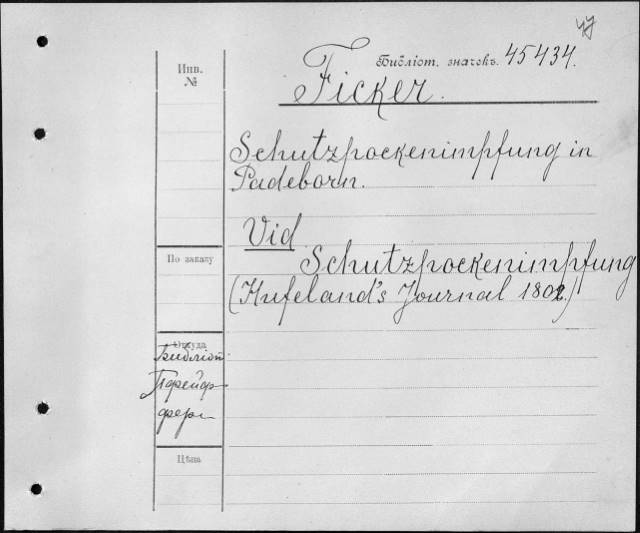 47
Библіот. значекъ. 45434.
Инв.
№
Ficker.
Schutzpockenimpfung in
Padeborn.
Vid
Schutzpockenimpfung
(Hufeland's Journal 1802)
По заказу
Откуда
Библіот.
Пфейф-
фера
Цѣна